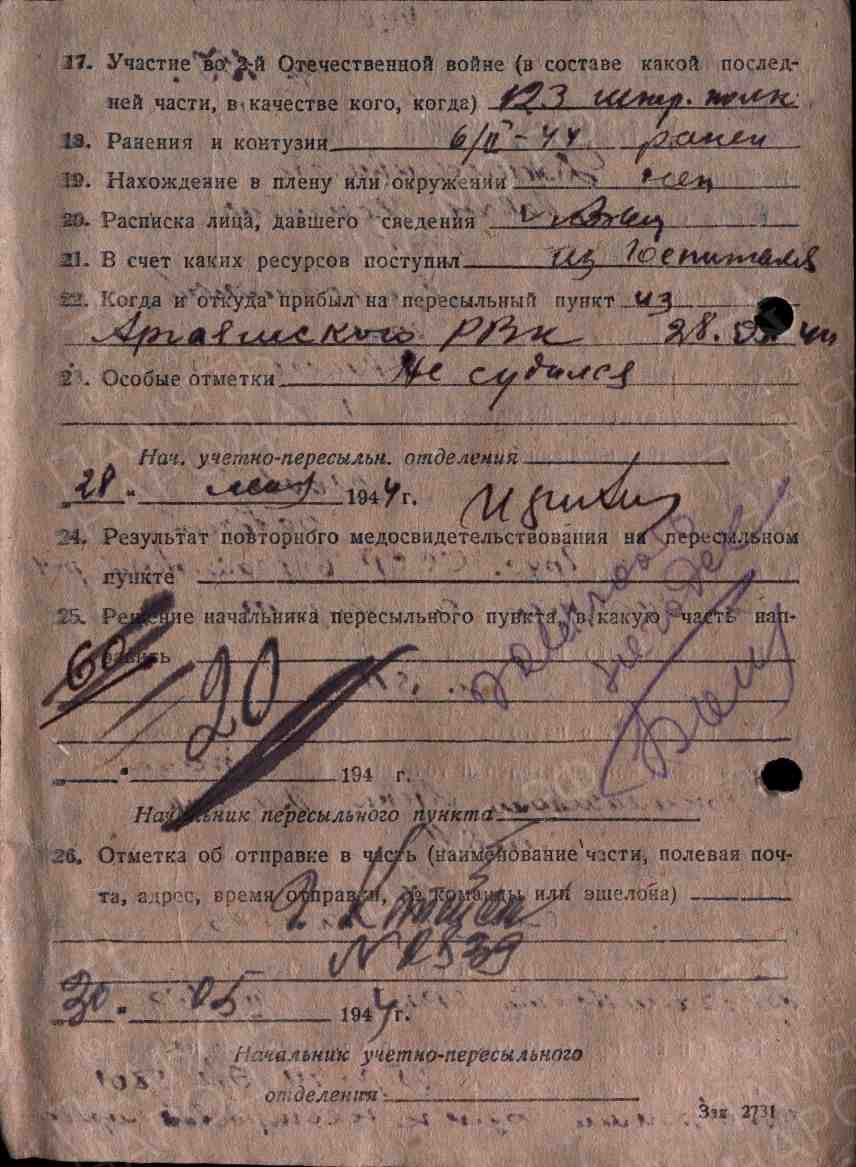 17. Участие во 2-й Отечественной войне (в составе какой послед-
ней части, в качестве кого, когда) 123 полк
18. Ранения и контузии 6/II-44 ранен
19. Нахождение в плену или окружении нет
20. Расписка лица, давшего сведения
21. В счет каких ресурсов поступил из госпиталя
22. Когда и откуда прибыл на пересыльный пункт из
Аргаяшского РВК 28.05.44
23. Особые отметки Не судился
Нач. учетно-пересыльн. отделения
„28“ 1944 г.
24. Результат повторного медосвидетельствования на пересыльном
пункте
25. Решение начальника пересыльного пункта, в какую часть нап-
равить
60
20
„ “ 194 г.
Начальник пересыльного пункта
26. Отметка об отправке в часть (наименование части, полевая поч-
та, адрес, время отправки, № команды или эшелона)
„30“ 05 1944 г.
Начальник учетно-пересыльного
отделения
Зак. 2731